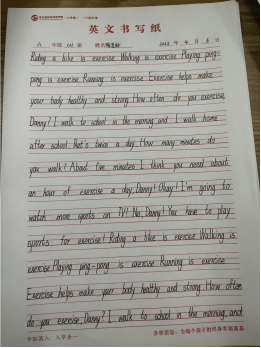 英文书写纸
六 年级 班 姓名 年 4 月 日
Riding a bike is exercise Walking is exercise. Playing ping-
pong is exercise Running is exercise Exercise helps make
your body healthy and strong How often do you exercise
Danny? I walk to school in the morning and I walk home
after school that's twice a day. How many minutes do
you walk? About five minutes I think you need about
an hour of exercise a day, Danny! Okay! I'm going to
watch more sports on TV! No, Danny! You have to play
sports for exercise! Riding a bike is exercise Walking is
exercise. Playing ping-pong is exercise Running is exercise
Exercise helps make your body healthy and strong How often
do you exercise, Danny? I walk to school in the morning, and
字如其人 人字合一
办学宗旨：为每个孩子的终身幸福奠基